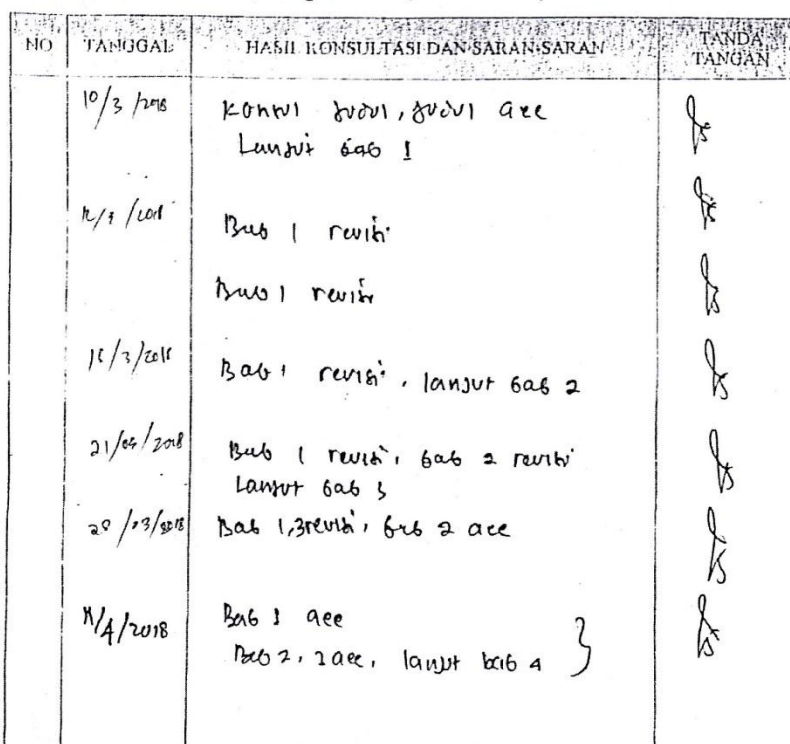 NO TANGGAL HASIL KONSULTASI DAN SARAN-SARAN TANDA TANGAN
10/3/2018 Konsul judul, judul acc
Lanjut bab 1
Bab 1 revisi
Bab 1 revisi
Bab 1 revisi, lanjut bab 2
21/03/2018 Bab 1 revisi, bab 2 revisi
Lanjut bab 3
28/03/2018 Bab 1,3 revisi, bab 2 acc
/4/2018 Bab 1 acc
Bab 2, 3 acc, lanjut bab 4